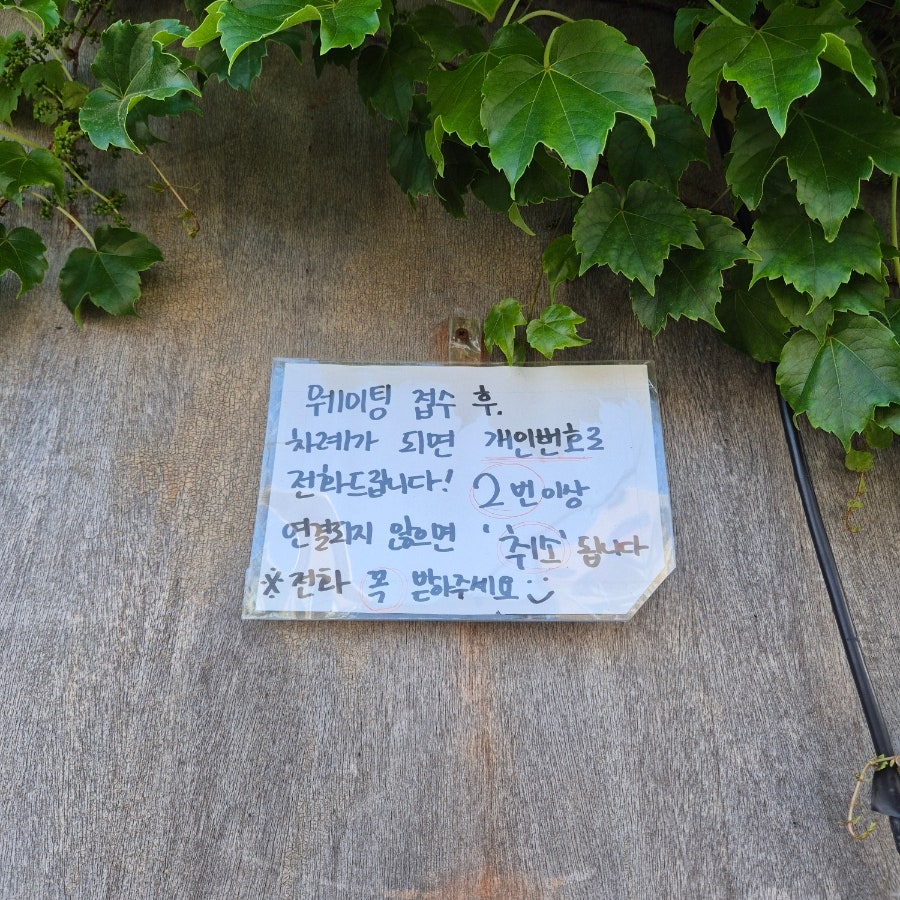 웨이팅 접수 후,
차례가 되면 개인번호로
전화드립니다! 2번 이상
연결되지 않으면 '취소' 됩니다
※전화 꼭 받아주세요